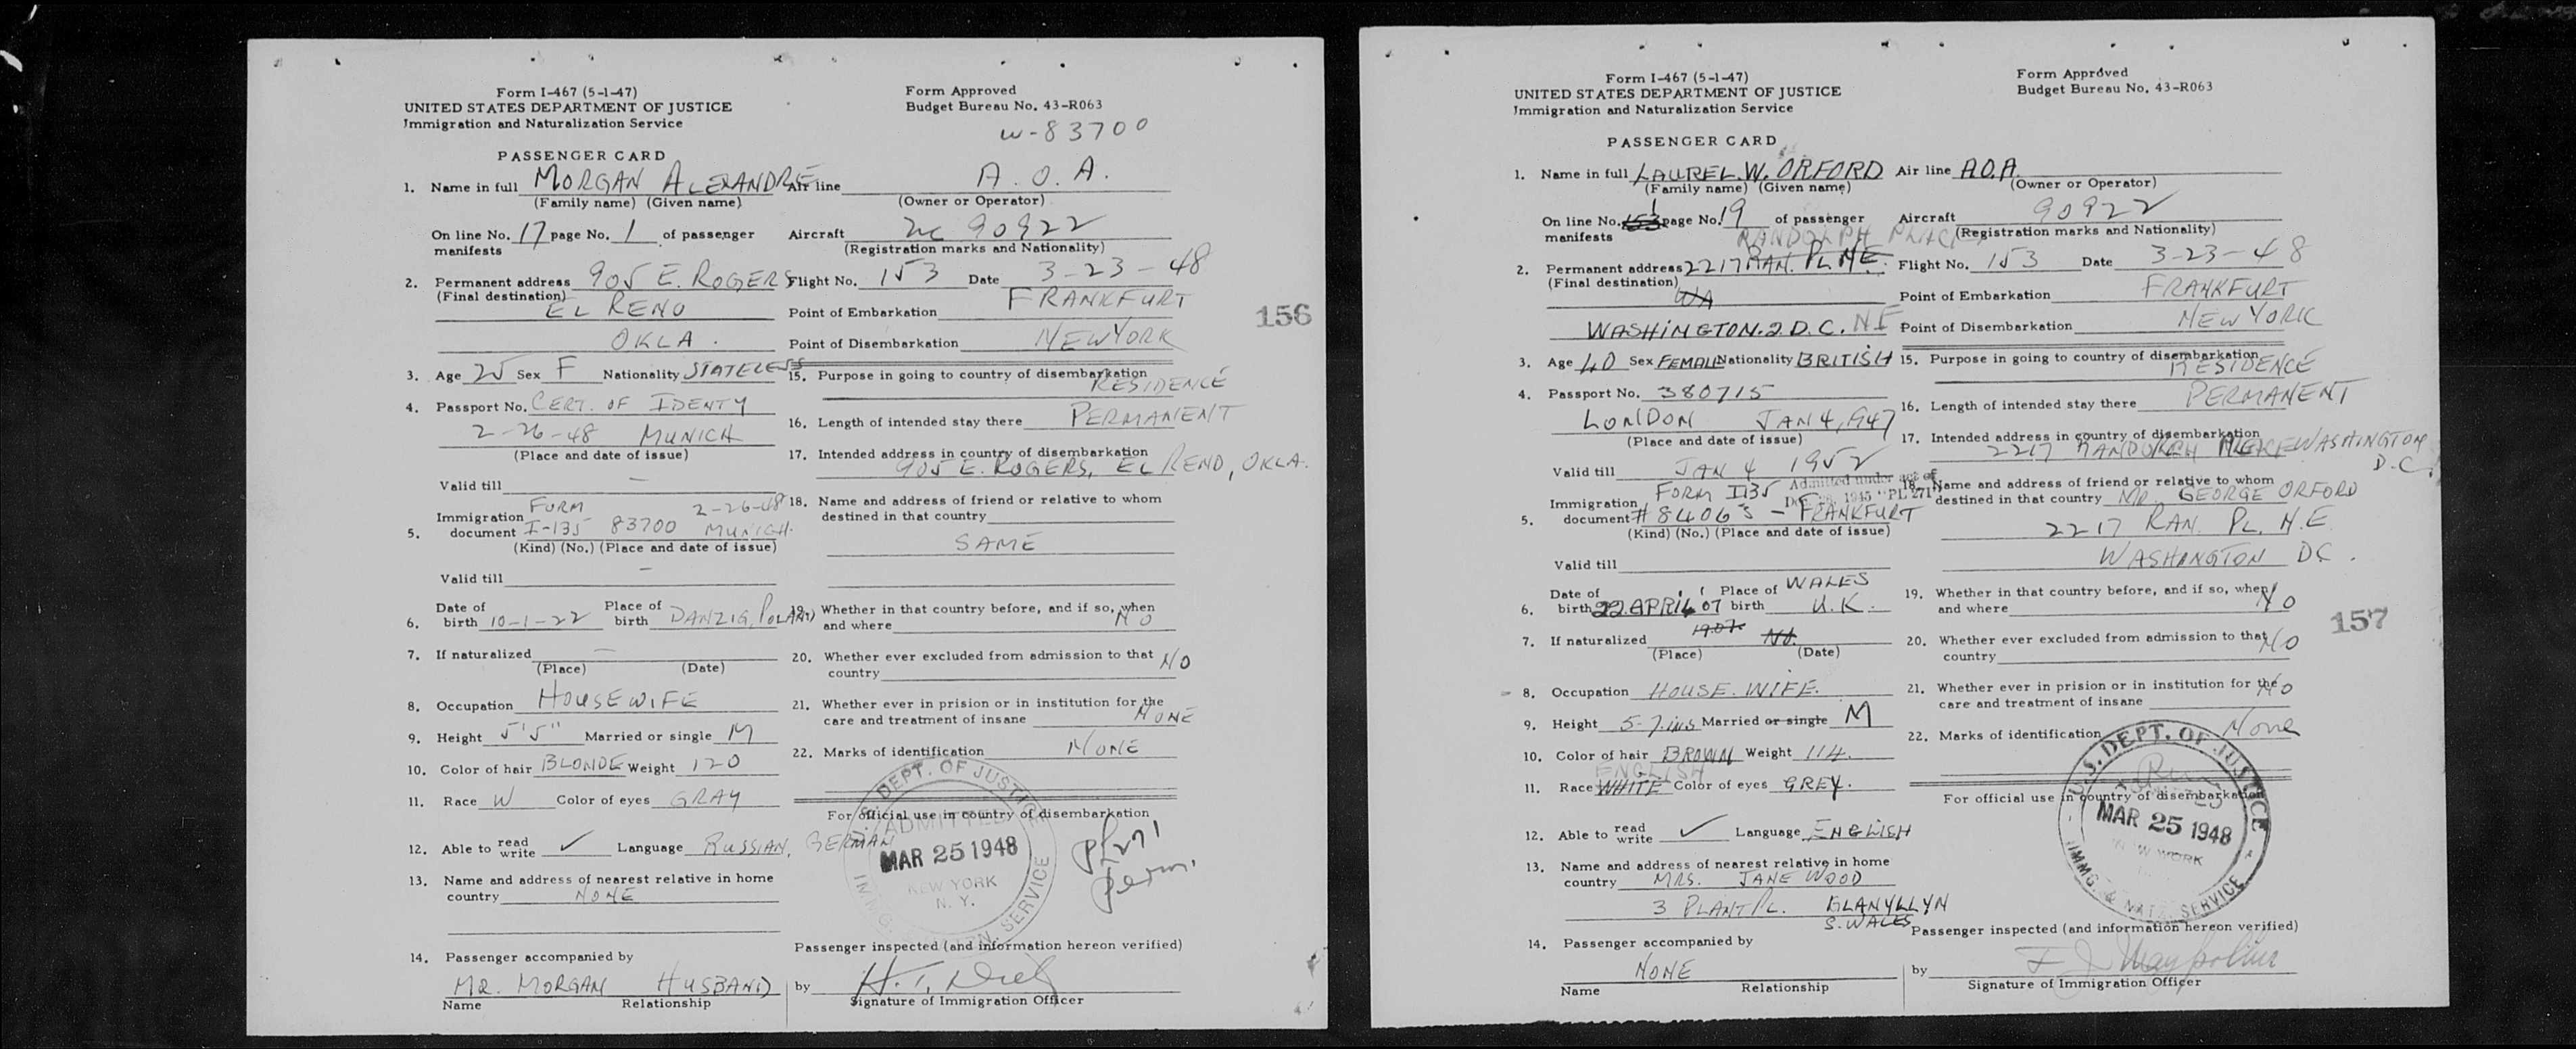 Form I-467 (5-1-47)
UNITED STATES DEPARTMENT OF JUSTICE
Immigration and Naturalization Service
Form Approved
Budget Bureau No. 43-R063
W-83700
PASSENGER CARD
1. Name in full MORGAN ALEXANDRE
(Family name) (Given name)
On line No. 17 page No. 1 of passenger
manifests
2. Permanent address 905 E. ROGERS
(Final destination)
EL RENO
OKLA.
3. Age 25 Sex F Nationality STATELESS
4. Passport No. CERT. OF IDENTY
2-26-48 MUNICH
(Place and date of issue)
Valid till —
Immigration FORM 2-26-48
5. document I-135 83700 MUNICH.
(Kind) (No.) (Place and date of issue)
Valid till —
Date of Place of
6. birth 10-1-22 birth DANZIG, POLAND
7. If naturalized —
(Place) (Date)
8. Occupation HOUSEWIFE
9. Height 5'5" Married or single M
10. Color of hair BLONDE Weight 120
11. Race W Color of eyes GRAY
12. Able to read write ✓ Language RUSSIAN, GERMAN
13. Name and address of nearest relative in home
country NONE
14. Passenger accompanied by
MR. MORGAN HUSBAND
Name Relationship
Air line A.O.A.
(Owner or Operator)
Aircraft NC 90922
(Registration marks and Nationality)
Flight No. 153 Date 3-23-48
Point of Embarkation FRANKFURT
Point of Disembarkation NEW YORK
15. Purpose in going to country of disembarkation
RESIDENCE
16. Length of intended stay there PERMANENT
17. Intended address in country of disembarkation
905 E. ROGERS, EL RENO, OKLA.
18. Name and address of friend or relative to whom
destined in that country
SAME
19. Whether in that country before, and if so, when
and where NO
20. Whether ever excluded from admission to that
country NO
21. Whether ever in prision or in institution for the
care and treatment of insane NONE
22. Marks of identification NONE
For official use in country of disembarkation
DEPT. OF JUSTICE
ADMITTED
MAR 25 1948
NEW YORK
N. Y.
IMMG. SERVICE
perm.
Passenger inspected (and information hereon verified)
by
Signature of Immigration Officer
156
Form I-467 (5-1-47)
UNITED STATES DEPARTMENT OF JUSTICE
Immigration and Naturalization Service
Form Approved
Budget Bureau No. 43-R063
PASSENGER CARD
1. Name in full LAUREL. W. ORFORD
(Family name) (Given name)
On line No. 153 1 page No. 19 of passenger
manifests
RANDOLPH PLACE
2. Permanent address 2217 RAN. PL. N.E.
(Final destination)
WA
WASHINGTON. 2 D.C. NE
3. Age 40 Sex FEMALE Nationality BRITISH
4. Passport No. 380715
LONDON JAN 4, 1947
(Place and date of issue)
Valid till JAN 4 1952
Admitted under act of
Dec. 28, 1945 "PL 271"
Immigration FORM I135
5. document # 84063 - FRANKFURT
(Kind) (No.) (Place and date of issue)
Valid till
Date of Place of WALES
6. birth 22. APRIL 07 birth U.K.
1907. No.
7. If naturalized
(Place) (Date)
8. Occupation HOUSE. WIFE.
9. Height 5-7.ins Married or single M
10. Color of hair BROWN Weight 114.
ENGLISH
11. Race WHITE Color of eyes GREY.
12. Able to read write ✓ Language ENGLISH
13. Name and address of nearest relative in home
country MRS. JANE WOOD
3 PLANT PL. GLANYLLYN
S. WALES
14. Passenger accompanied by
NONE
Name Relationship
Air line A.O.A.
(Owner or Operator)
Aircraft 90922
(Registration marks and Nationality)
Flight No. 153 Date 3-23-48
Point of Embarkation FRANKFURT
Point of Disembarkation NEW YORK
15. Purpose in going to country of disembarkation
RESIDENCE
16. Length of intended stay there PERMANENT
17. Intended address in country of disembarkation
2217 RANDOLPH PLACE WASHINGTON
D.C.
18. Name and address of friend or relative to whom
destined in that country MR. GEORGE ORFORD
2217 RAN. PL. N.E.
WASHINGTON D.C.
19. Whether in that country before, and if so, when
and where NO
20. Whether ever excluded from admission to that
country NO
21. Whether ever in prision or in institution for the
care and treatment of insane NO
22. Marks of identification None
For official use in country of disembarkation
U.S. DEPT. OF JUSTICE
MAR 25 1948
NEW YORK
IMMG. & NATZ. SERVICE
Passenger inspected (and information hereon verified)
by
Signature of Immigration Officer
157